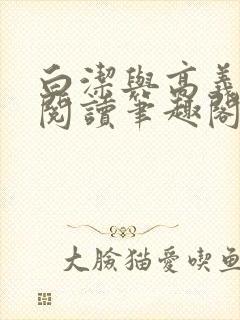 白潔與高義
閱讀筆趣閣
大臉猫愛喫鱼